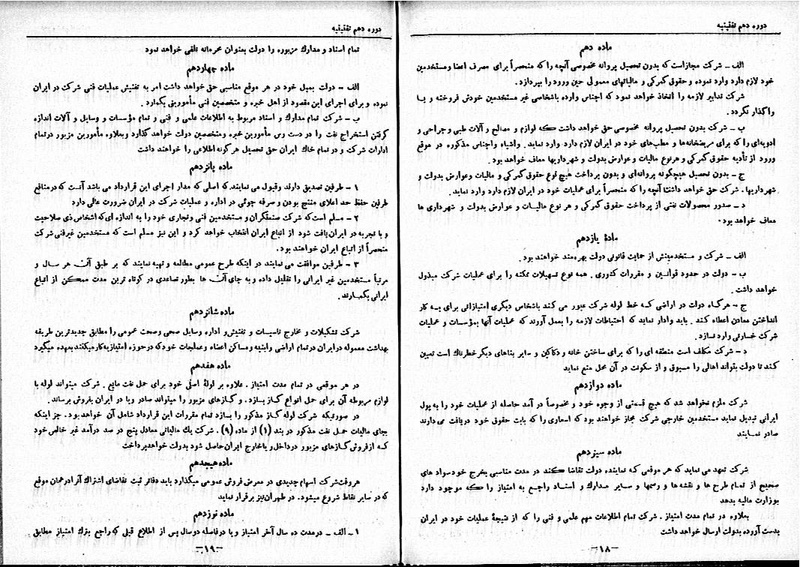 دوره دهم تقنینیه
ماده دهم
الف – شرکت مجازاست که بدون تحصیل پروانه مخصوصی آنچه را که منحصراً برای مصرف اعضا ومستخدمین
خود لازم دارد وارد نموده و حقوق گمرکی و مالیاتهای معمولی حین ورود را بپردازد.
شرکت تدابیر لازمه را اتخاذ خواهد نمود که اجناس وارده باشخاصی غیر مستخدمین خودش فروخته و یا
واگذار نگردد.
ب – شرکت بدون تحصیل پروانه مخصوصی حق خواهد داشت که لوازم و مصالح و آلات طبی و جراحی و
ادویه‌ای را که برای مریضخانه‌ها و مطب‌های خود در ایران لازم دارد وارد نماید. واشیاء واجناس مذکوره در موقع
ورود از تأدیه حقوق گمرکی و هرنوع مالیات و عوارض بدولت و شهرداریها معاف خواهد بود.
ج – بدون تحصیل هیچگونه پروانه‌ای و بدون پرداخت هیچ نوع حقوق گمرکی و مالیات وعوارض بدولت و
شهرداریها. شرکت حق خواهد داشت آنچه را که منحصراً برای عملیات خود در ایران لازم دارد وارد نماید.
د – صدور محصولات نفتی از پرداخت حقوق گمرکی و هر نوع مالیات و عوارض بدولت و شهرداری ها
معاف خواهد بود.
ماده یازدهم
الف – شرکت و مستخدمینش از حمایت قانونی دولت بهره‌مند خواهند بود.
ب – دولت در حدود قوانین و مقررات کشوری. همه نوع تسهیلات ممکنه را برای عملیات شرکت مبذول
خواهد داشت.
ج – هرگاه دولت در اراضی که خط لوله شرکت عبور می کند باشخاص دیگری امتیازاتی برای به کار
انداختن معادن اعطاء کند. باید وادار نماید که احتیاطات لازمه را بعمل آورند که عملیات آنها بمؤسسات و عملیات
شرکت خسارتی وارد نسازد.
د – شرکت مکلف است منطقه ای را که برای ساختن خانه و دکاکین و سایر بناهای دیگر خطرناك است تعیین
کند تا دولت بتواند اهالی را مسبوق و از سکونت در آن محل منع نماید
ماده دوازدهم
شرکت ملزم نخواهد شد که هیچ قسمتی از وجوه خود و مخصوصاً در آمد حاصله از عملیات خود را به پول
ایرانی تبدیل نماید مستخدمین خارجی شرکت مجاز خواهند بود که اسعاری را که بابت حقوق خود دریافت می دارند
صادر نمایند
ماده سیزدهم
شرکت تعهد می نماید که هر موقعی که نماینده دولت تقاضا کند در مدت مناسبی بخرج خود سواد های
صحیح از تمام طرح ها و نقشه ها و رسمها و سایر مدارك و اسناد راجع به امتیاز را که موجود دارد
بوزارت مالیه بدهد
بعلاوه در تمام مدت امتیاز. شرکت تمام اطلاعات مهم علمی و فنی را که از نتیجهٔ عملیات خود در ایران
بدست آورده بدولت ارسال خواهد داشت
–۱۸–
دوره دهم تقنینیه
تمام اسناد و مدارك مزبوره را دولت بعنوان محرمانه تلقی خواهد نمود
ماده چهاردهم
الف – دولت بمیل خود در هر موقع مناسبی حق خواهد داشت امر به تفتیش عملیات فنی شرکت در ایران
نموده و برای اجرای این مقصود از اهل خبره و متخصصین فنی مأمورینی بگمارد.
ب – شرکت تمام مدارك و اسناد مربوط به اطلاعات علمی و فنی و تمام مؤسسات و وسایل و آلات اندازه
گرفتن استخراج نفت را در دست رس مأمورین خبره ومتخصصین دولت خواهد گذارد وبعلاوه مأمورین مزبور در تمام
ادارات شرکت و در تمام خاك ایران حق تحصیل هر گونه اطلاعی را خواهند داشت
ماده پانزدهم
۱ – طرفین تصدیق دارند وقبول می نمایند که اصلی که مدار اجرای این قرارداد می باشد آنست که در منافع
طرفین حفظ حد اعلای منتج بودن و صرفه جوئی در اداره و عملیات شرکت در ایران ضرورت عالی دارد
۲ – مسلم است که شرکت صنعتگران و مستخدمین فنی وتجاری خود را به اندازه ای که اشخاص ذی صلاحیت
و با تجربه در ایران یافت شود از اتباع ایران انتخاب خواهد کرد و این نیز مسلم است که مستخدمین غیرفنی شرکت
منحصراً از اتباع ایران خواهند بود.
۳ – طرفین موافقت می نمایند در اینکه طرح عمومی مطالعه و تهیه نمایند که بر طبق آن هر سال و
مرتباً مستخدمین غیر ایرانی را تقلیل داده و به جای آن ها بطور تصاعدی در کوتاه ترین مدت ممکن از اتباع
ایرانی بگمارند.
ماده شانزدهم
شرکت تشکیلات و مخارج تاسیسات و تفتیش و اداره وسایل صحی وصحت عمومی را مطابق جدیدترین طریقه
بهداشت معموله در ایران در تمام اراضی وابنیه ومساکن اعضاء وعملجات خود که در حوزه امتیاز به کار میکنند بعهده میگیرد
ماده هفدهم
در هر موقعی در تمام مدت امتیاز. علاوه بر لولهٔ اصلی خود برای حمل نفت مایع. شرکت میتواند لوله یا
لوازم مربوطه آن برای حمل انواع گاز بسازد. و گازهای مزبور را میتواند صادر ویا در ایران بفروش برساند.
در صورتیکه شرکت لوله گاز مذکور را بسازد تمام مقررات این قرارداد شامل آن خواهد بود. جز اینکه
بجای مالیات حمل نفت مذکور در بند (۱) از ماده (۹). شرکت یك مالیاتی معادل پنج در صد درآمد غیر خالص خود
که از فروش گازهای مزبور در داخل و یا خارج ایران حاصل شود بدولت خواهد پرداخت
ماده هیجدهم
هروقت شرکت اسهام جدیدی در معرض فروش عمومی میگذارد باید دفاتر ثبت تقاضای اشتراك آنرا در همان موقع
که در سایر نقاط شروع میشود. در طهران نیز برقرار نماید
ماده نوزدهم
۱ – الف – در مدت ده سال آخر امتیاز و یا درفاصله دو سال پس از اطلاع قبلی که راجع بترك امتیاز مطابق
–۱۹–